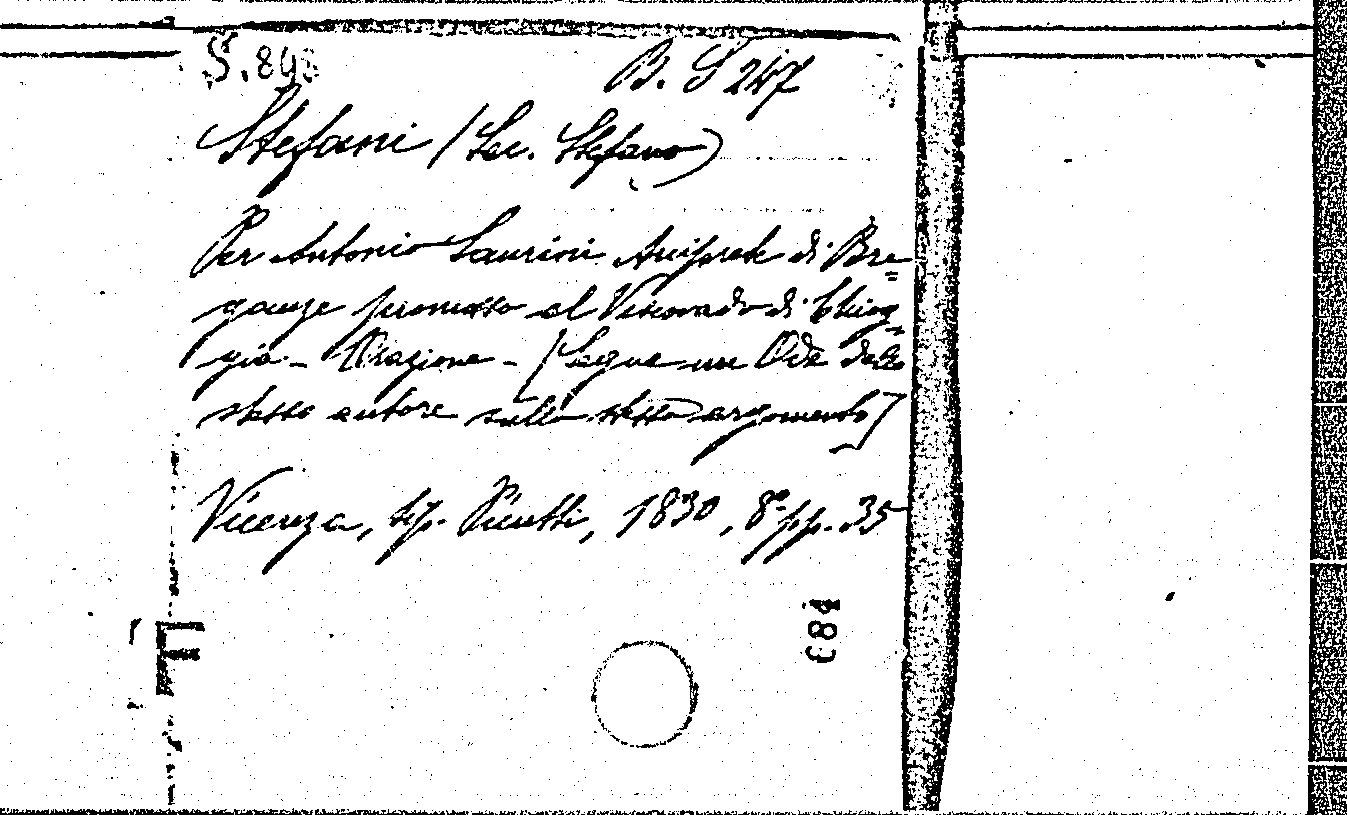 S. 848 B. S 247
Stefani (Sac. Stefano)
Per Antonio Savorin Arciprete di Bre=
ganze promosso al Vescovado di Chiog=
gia - Orazione - [Segue un Ode dello
stesso autore sullo stesso argomento]
Vicenza, tip. Picutti, 1830, 8° pp. 35
684